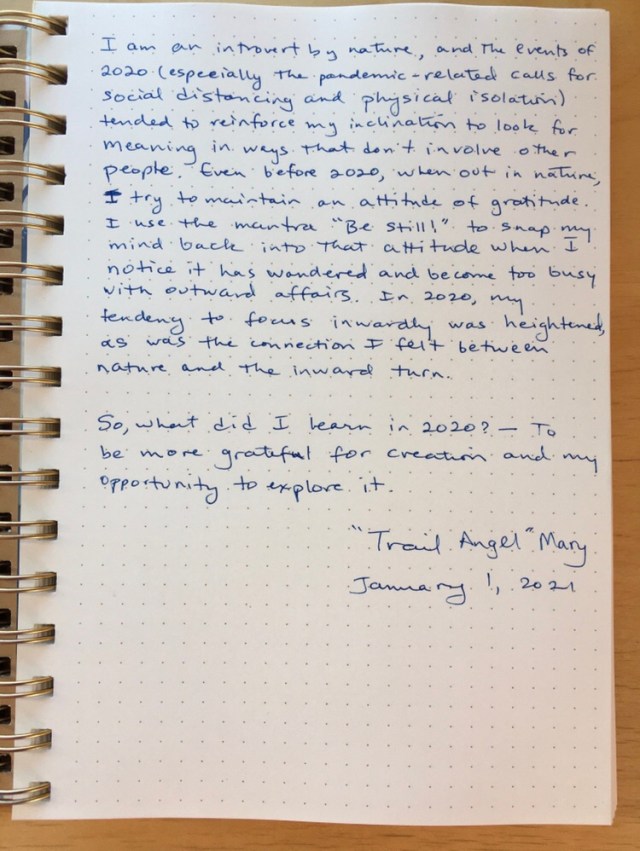 I am an introvert by nature, and the events of
2020 (especially the pandemic-related calls for
social distancing and physical isolation)
tended to reinforce my inclination to look for
meaning in ways that don't involve other
people. Even before 2020, when out in nature,
I try to maintain an attitude of gratitude.
I use the mantra "Be still!" to snap my
mind back into that attitude when I
notice it has wandered and become too busy
with outward affairs. In 2020, my
tendeny to focus inwardly was heightened,
as was the connection I felt between
nature and the inward turn.
So, what did I learn in 2020? — To
be more grateful for creation and my
opportunity to explore it.
"Trail Angel" Mary
January 1, 2021